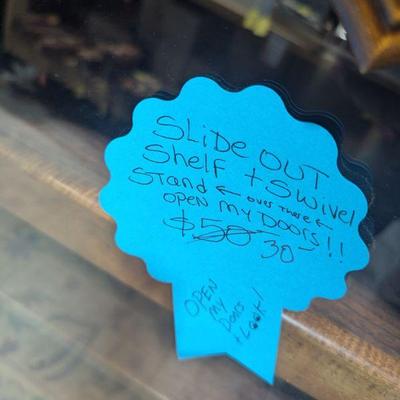 SLiDE OUT
Shelf + Swivel
STAND ← over there ←
OPEN My DOORS!!
$50 30-
OPEN
My
Doors
+ Look!